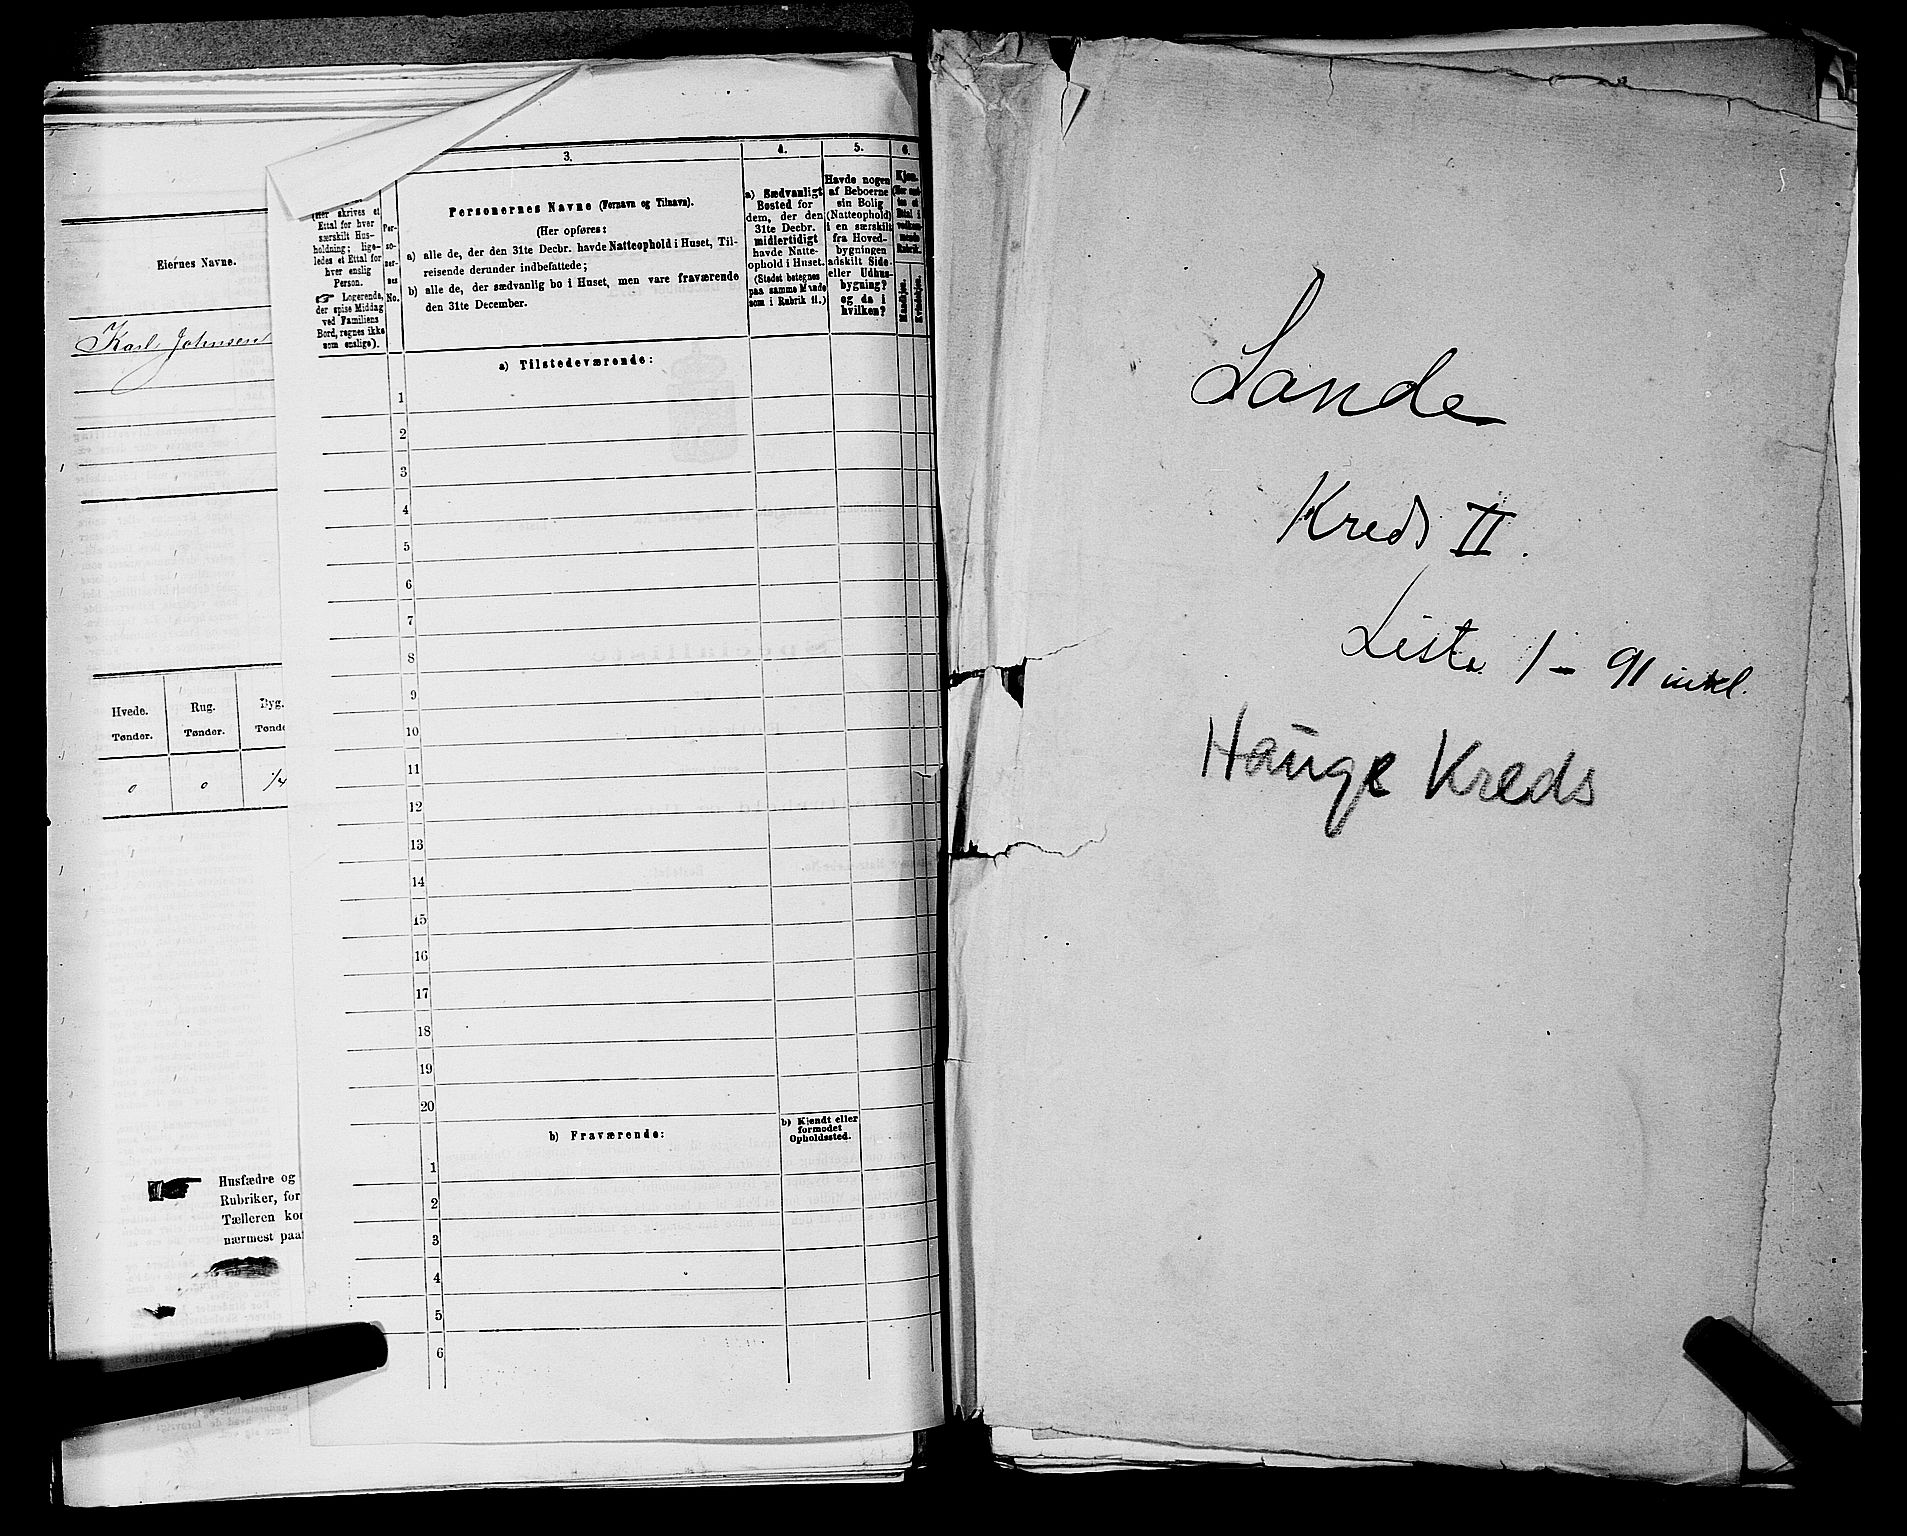 Eiernes Navne.
Karl Johnsen
Hvede.
Rug.
Byg.
Tønder.
Tønder.
Tønde
0
0
1/4
Husfædre og
Rubriker, for
Tælleren kon
nærmest paa
3.
4.
5.
6.
(Her skrives et
Ettal for hver
særskilt Hus-
holdning; lige-
ledes et Ettal for
hver enslig
Person.
☞ Logerende,
der spise Middag
ved Familiens
Bord, regnes ikke
som enslige).
Per-
so-
ner-
nes
No.
Personernes Navne (Fornavn og Tilnavn).
(Her opføres:
a) alle de, der den 31te Decbr. havde Natteophold i Huset, Til-
reisende derunder indbefattede;
b) alle de, der sædvanlig bo i Huset, men vare fraværende
den 31te December.
a) Sædvanligt
Bosted for
dem, der den
31te Decbr.
midlertidigt
havde Natte-
ophold i Huset.
(Stedet betegnes
paa samme Maade
som i Rubrik 11.)
Havde nogen
af Beboerne
sin Bolig
(Natteophold)
i en særskilt
fra Hoved-
bygningen
adskilt Side-
eller Udhus-
bygning?
og da i
hvilken?
Kjøn.
Mandkjøn.
Kvindekjøn.
a) Tilstedeværende:
1
2
3
4
5
6
7
8
9
10
11
12
13
14
15
16
17
18
19
20
b) Fraværende:
b) Kjendt eller
formodet
Opholdssted.
1
2
3
4
5
6
Sande
Kreds II.
Liste 1 - 91 inkl.
Hauge Kreds